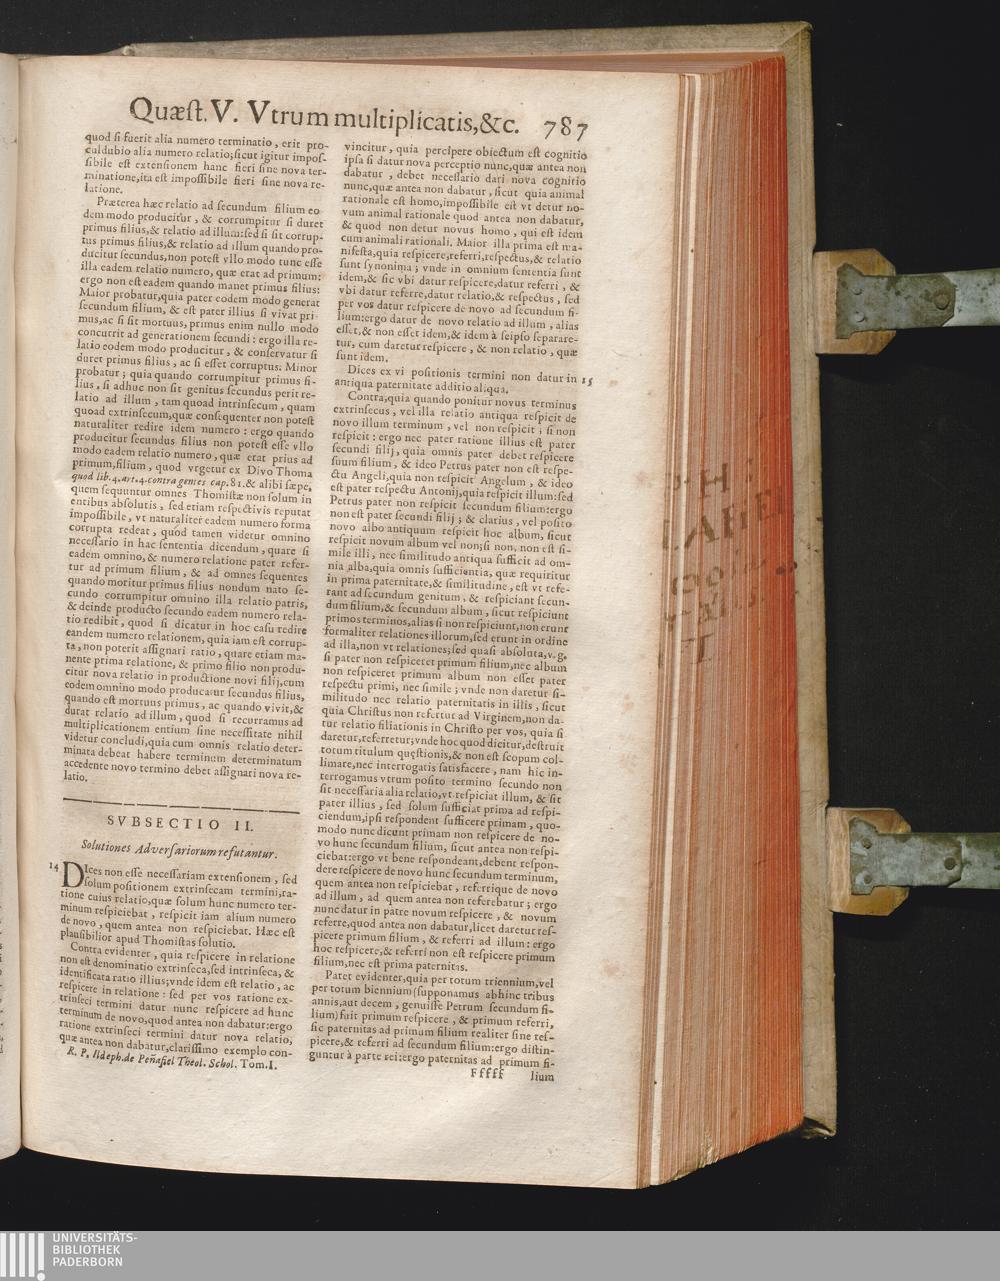 Quæſt. V. Vtrum multiplicatis,&c. 787
quod ſi fuerit alia numero terminatio, erit pro-
culdubio alia numero relatio;ſicut igitur impoſ-
ſibile eſt extenſionem hanc fieri ſine nova ter-
minatione,ita eſt impoſſibile fieri ſine nova re-
latione.
Præterea hæc relatio ad ſecundum filium eo
dem modo producitur, & corrumpitur ſi duret
primus filius,& relatio ad illum:ſed ſi ſit corrup-
tus primus filius,& relatio ad illum quando pro-
ducitur ſecundus,non poteſt vllo modo tunc eſſe
illa eadem relatio numero, quæ erat ad primum:
ergo non eſt eadem quando manet primus filius:
Maior probatur,quia pater eodem modo generat
ſecundum filium, & eſt pater illius ſi vivat pri-
mus,ac ſi ſit mortuus, primus enim nullo modo
concurrit ad generationem ſecundi : ergo illa re-
latio eodem modo producitur, & conſervatur ſi
duret primus filius, ac ſi eſſet corruptus. Minor
probatur ; quia quando corrumpitur primus fi-
lius, ſi adhuc non ſit genitus ſecundus perit re-
latio ad illum, tam quoad intrinſecum, quam
quoad extrinſecum,quæ conſequenter non poteſt
naturaliter redire idem numero : ergo quando
producitur ſecundus filius non poteſt eſſe vllo
modo eadem relatio numero, quæ erat prius ad
primum,filium, quod vrgetur ex Divo Thoma
quod lib.4.art.4.contra gentes cap.81.& alibi ſæpe,
quem ſequuntur omnes Thomiſtæ non ſolum in
entibus abſolutis, ſed etiam reſpectivis reputat
impoſſibile, vt naturaliter eadem numero forma
corrupta redeat, quod tamen videtur omnino
neceſſario in hac ſententia dicendum, quare ſi
eadem omnino,& numero relatione pater refer-
tur ad primum filium, & ad omnes ſequentes
quando moritur primus filius nondum nato ſe-
cundo corrumpitur omnino illa relatio patris,
& deinde producto ſecundo eadem numero rela-
tio redibit, quod ſi dicatur in hoc caſu redire
eandem numero relationem, quia iam eſt corrup-
ta, non poterit aſſignari ratio, quare etiam ma-
nente prima relatione, & primo filio non produ-
citur nova relatio in productione novi filij,cum
eodem omnino modo producatur ſecundus filius,
quando eſt mortuus primus, ac quando vivit,&
durat relatio ad illum, quod ſi recurramus ad
multiplicationem entium ſine neceſſitate nihil
videtur concludi,quia cum omnis relatio deter-
minata debeat habere terminum determinatum
accedente novo termino debet aſſignari nova re-
latio.
SVBSECTIO II.
Solutiones Adverſariorum refutantur.
14 DIces non eſſe neceſſariam extenſionem, ſed
ſolum poſitionem extrinſecam termini,ra-
tione cuius relatio,quæ ſolum hunc numero ter-
minum reſpiciebat, reſpicit iam alium numero
de novo, quem antea non reſpiciebat. Hæc eſt
plauſibilior apud Thomiſtas ſolutio.
Contra evidenter, quia reſpicere in relatione
non eſt denominatio extrinſeca,ſed intrinſeca, &
identificata ratio illius;vnde idem eſt relatio, ac
reſpicere in relatione : ſed per vos ratione ex-
trinſeci termini datur nunc reſpicere ad hunc
terminum de novo,quod antea non dabatur:ergo
ratione extrinſeci termini datur nova relatio,
quæ antea non dabatur,clariſſimo exemplo con-
R. P. Ildeph.de Peñafiel Theol. Schol. Tom.I.
vincitur, quia percipere obiectum eſt cognitio
ipſa ſi datur nova perceptio nunc,quæ antea non
dabatur, debet neceſſario dari nova cognitio
nunc,quæ antea non dabatur, ſicut quia animal
rationale eſt homo,impoſſibile eſt vt detur no-
vum animal rationale quod antea non dabatur,
& quod non detur novus homo, qui eſt idem
cum animali rationali. Maior illa prima eſt ma-
nifeſta,quia reſpicere,referri,reſpectus,& relatio
ſunt ſynonima ; vnde in omnium ſententia ſunt
idem,& ſic vbi datur reſpicere,datur referri, &
vbi datur referre,datur relatio,& reſpectus, ſed
per vos datur reſpicere de novo ad ſecundum fi-
lium:ergo datur de novo relatio ad illum, alias
eſſet,& non eſſet idem,& idem à ſeipſo ſeparare-
tur, cum daretur reſpicere, & non relatio, quæ
ſunt idem.
Dices ex vi poſitionis termini non datur in 15
antiqua paternitate additio aliqua.
Contra,quia quando ponitur novus terminus
extrinſecus, vel illa relatio antiqua reſpicit de
novo illum terminum, vel non reſpicit ; ſi non
reſpicit : ergo nec pater ratione illius eſt pater
ſecundi filij, quia omnis pater debet reſpicere
ſuum filium, & ideo Petrus pater non eſt reſpe-
ctu Angeli,quia non reſpicit Angelum, & ideo
eſt pater reſpectu Antonij,quia reſpicit illum:ſed
Petrus pater non reſpicit ſecundum filium:ergo
non eſt pater ſecundi filij ; & clarius, vel poſito
novo albo antiquum reſpicit hoc album, ſicut
reſpicit novum album vel non;ſi non, non eſt ſi-
mile illi, nec ſimilitudo antiqua ſufficit ad om-
nia alba,quia omnis ſufficientia, quæ requiritur
in prima paternitate,& ſimilitudine, eſt vt refe-
rant ad ſecundum genitum, & reſpiciant ſecun-
dum filium,& ſecundum album, ſicut reſpiciunt
primos terminos,alias ſi non reſpiciunt,non erunt
formaliter relationes illorum,ſed erunt in ordine
ad illa,non vt relationes;ſed quaſi abſoluta,v.g.
ſi pater non reſpiceret primum filium,nec album
non reſpiceret primum album non eſſet pater
reſpectu primi, nec ſimile ; vnde non daretur ſi-
militudo nec relatio paternitatis in illis, ſicut
quia Chriſtus non refertur ad Virginem,non da-
tur relatio filiationis in Chriſto per vos, quia ſi
daretur,referretur;vnde hoc quod dicitur,deſtruit
totum titulum quęſtionis,& non eſt ſcopum col-
limare,nec interrogatis ſatisfacere, nam hic in-
terrogamus vtrum poſito termino ſecundo non
ſit neceſſaria alia relatio,vt reſpiciat illum, & ſit
pater illius, ſed ſolum ſufficiat prima ad reſpi-
ciendum,ipſi reſpondent ſufficere primam, quo-
modo nunc dicunt primam non reſpicere de no-
vo hunc ſecundum filium, ſicut antea non reſpi-
ciebat:ergo vt bene reſpondeant,debent reſpon-
dere reſpicere de novo hunc ſecundum terminum,
quem antea non reſpiciebat, referrique de novo
ad illum, ad quem antea non referebatur ; ergo
nunc datur in patre novum reſpicere, & novum
referre,quod antea non dabatur,licet daretur reſ-
picere primum filium, & referri ad illum : ergo
hoc reſpicere,& referri non eſt reſpicere primum
filium,nec eſt prima paternitas.
Patet evidenter,quia per totum triennium,vel
per totum biennium (ſupponamus abhinc tribus
annis,aut decem, genuiſſe Petrum ſecundum fi-
lium) fuit primum reſpicere, & primum referri,
ſic paternitas ad primum filium realiter ſine reſ-
picere,& referri ad ſecundum filium:ergo diſtin-
guntur à parte rei:ergo paternitas ad primum fi-
Fffff lium
UNIVERSITÄTS-
BIBLIOTHEK
PADERBORN